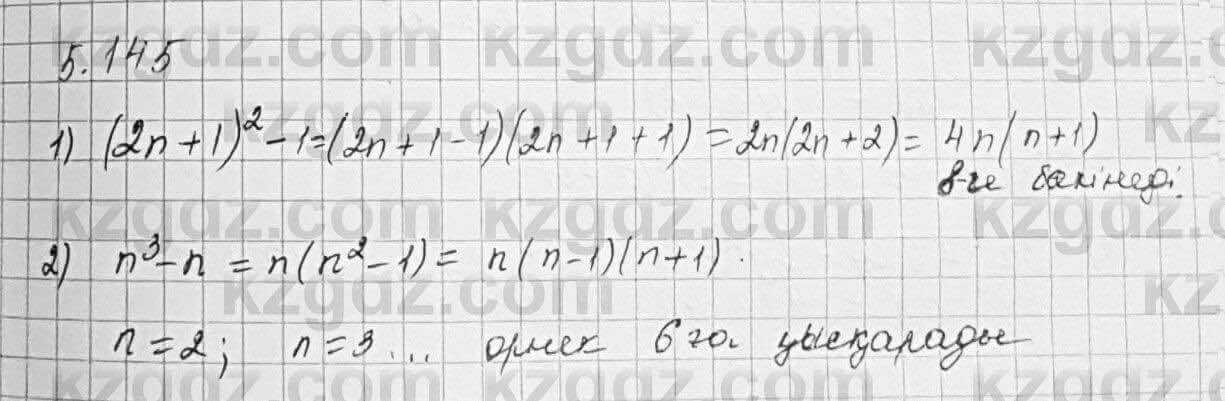 5.145
1) (2n+1)²-1=(2n+1-1)(2n+1+1)=2n(2n+2)= 4n(n+1)
8-ге бөлінеді.
2) n³-n = n(n²-1)= n(n-1)(n+1).
n=2; n=3... өрнек 6 га қысқарады
kzgdz.com